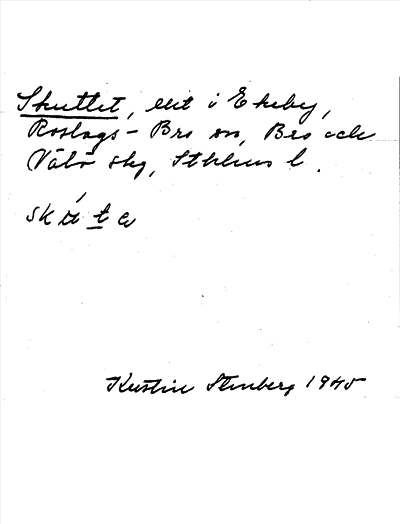 Skuttet, ent i Ekeby,
Roslags-Bro sn, Bro och
Vätö skg, Sthlms l.
Kerstin Stenberg 1945